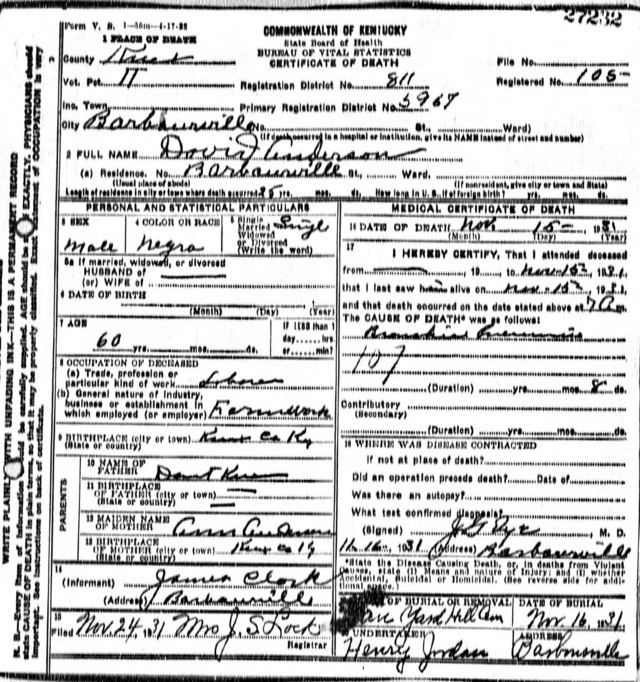 27232
Form V. S. 1
1 PLACE OF DEATH
COMMONWEALTH OF KENTUCKY
State Board of Health
BUREAU OF VITAL STATISTICS
CERTIFICATE OF DEATH
County Knox
File No.
Vot. Pct. 11
Registration District No. 811
Registered No. 105
Inc. Town
Primary Registration District No. 5967
City Barbourville No. St., Ward)
(If death occurred in a hospital or institution, give its NAME instead of street and number)
2 FULL NAME Anderson
(a) Residence. No. Barbourville St., Ward.
(Usual place of abode) (If nonresident, give city or town and State)
Length of residence in city or town where death occurred yrs. mos. ds. How long in U. S., if of foreign birth? yrs. mos. ds.
PERSONAL AND STATISTICAL PARTICULARS
3 SEX
Male
4 COLOR OR RACE
Negro
5 Single
Married
Widowed
or Divorced
(Write the word)
Singl
5a If married, widowed, or divorced
HUSBAND of
(or) WIFE of
6 DATE OF BIRTH
(Month) (Day) (Year)
7 AGE
60 yrs. mos. ds.
If LESS than 1
day hrs.
or min?
8 OCCUPATION OF DECEASED
(a) Trade, profession or
particular kind of work Laborer
(b) General nature of industry,
business or establishment in
which employed (or employer) Farm Work
9 BIRTHPLACE (city or town) Knox Co Ky
(State or country)
PARENTS
10 NAME OF
FATHER Dont Know
11 BIRTHPLACE
OF FATHER (city or town)
(State or country)
12 MAIDEN NAME
OF MOTHER Ann Anderson
13 BIRTHPLACE
OF MOTHER (city or town) Knox Co Ky
(State or country)
14
(Informant) James Clark
(Address) Barbourville
15
Filed Nov. 24, 1931 Mrs J. S. Lock
Registrar
MEDICAL CERTIFICATE OF DEATH
16 DATE OF DEATH Nov 15- 1931
(Month) (Day) (Year)
17
I HEREBY CERTIFY, That I attended deceased
from 19 to Nov-15th 1931,
that I last saw him alive on Nov-15th 1931,
and that death occurred on the date stated above at 7 A m.
The CAUSE OF DEATH* was as follows:
Bronchial Pneumonia
107
(Duration) yrs. mos. 8 ds.
Contributory
(Secondary)
(Duration) yrs. mos. ds.
18 WHERE WAS DISEASE CONTRACTED
If not at place of death?
Did an operation precede death? Date of
Was there an autopsy?
What test confirmed diagnosis?
(Signed) M. D.
11-16, 1931 (Address) Barbourville
*State the Disease Causing Death, or, in deaths from Violent
Causes, state (1) Means and Nature of Injury; and (2) whether
Accidental, Suicidal or Homicidal. (See reverse side for additional space.)
OF BURIAL OR REMOVAL
Yard Hill Cem
DATE OF BURIAL
Nov 16, 1931
UNDERTAKER
Henry Jordan
ADDRESS
Barbourville
WRITE PLAINLY WITH UNFADING INK—THIS IS A PERMANENT RECORD
N. B.—Every item of information should be carefully supplied. AGE should be EXACTLY. PHYSICIANS should
state CAUSE OF DEATH in plain terms, so that it may be properly classified. Exact of OCCUPATION is very
important. See instructions on back of certificate.